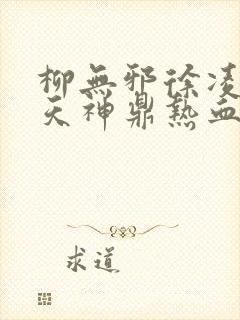 柳無邪徐凌
天神鼎熱血
求道